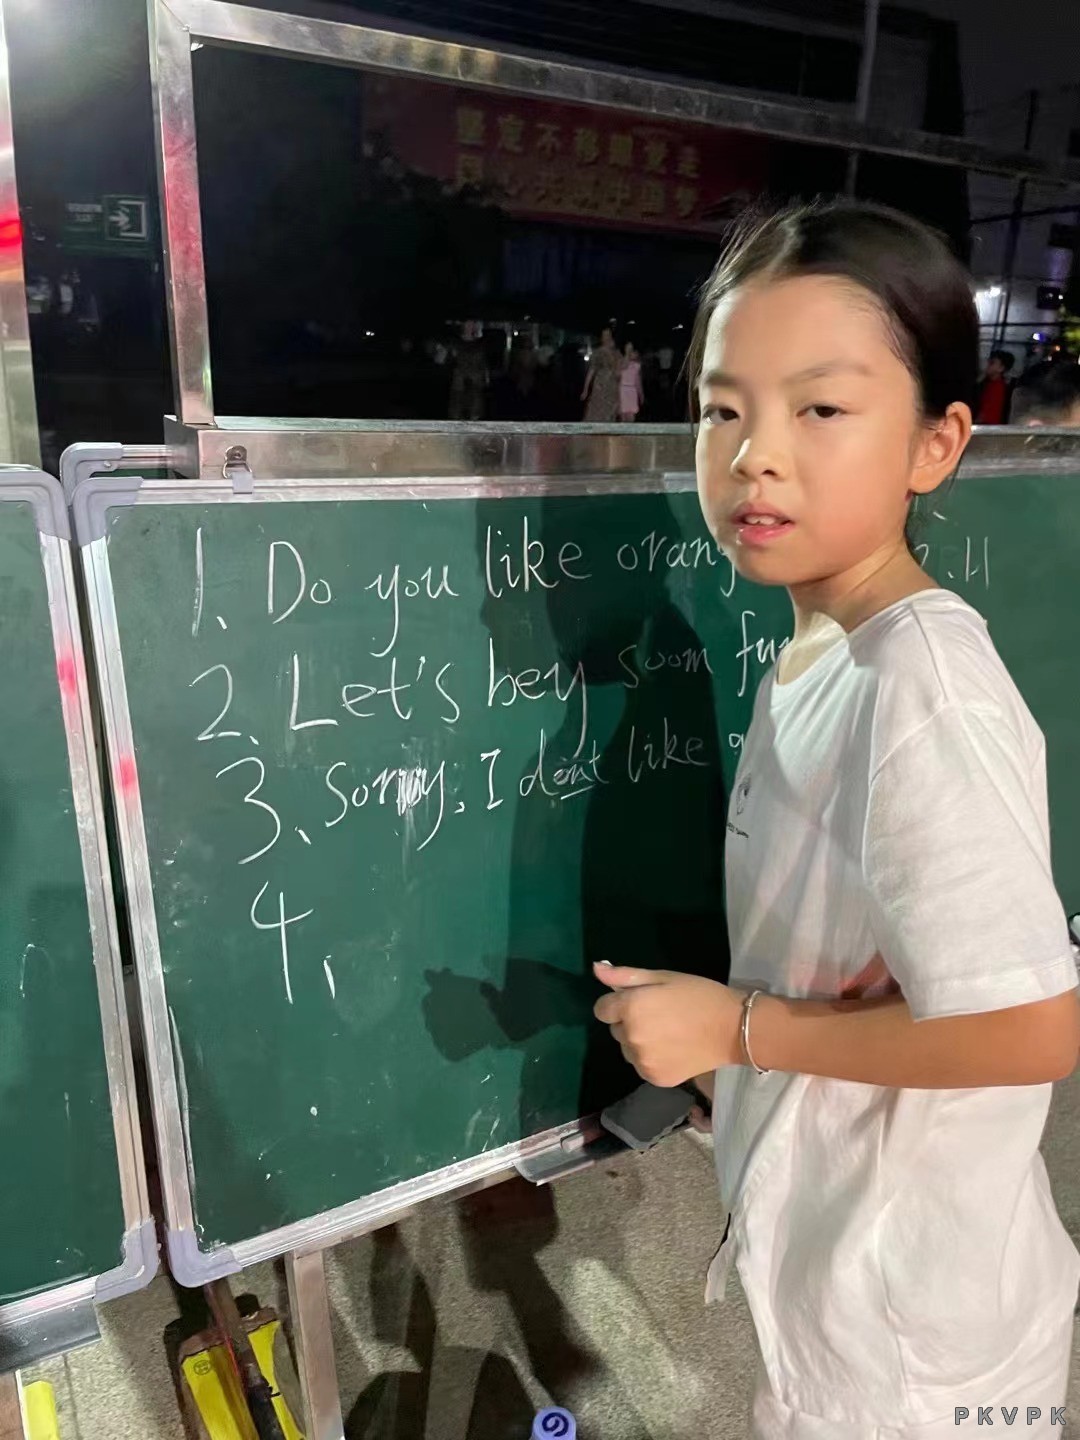 坚定不移跟党走
1、Do you like orang
2、Let's bey soom fu
3、sorry, I dont like
4、
PKVPK